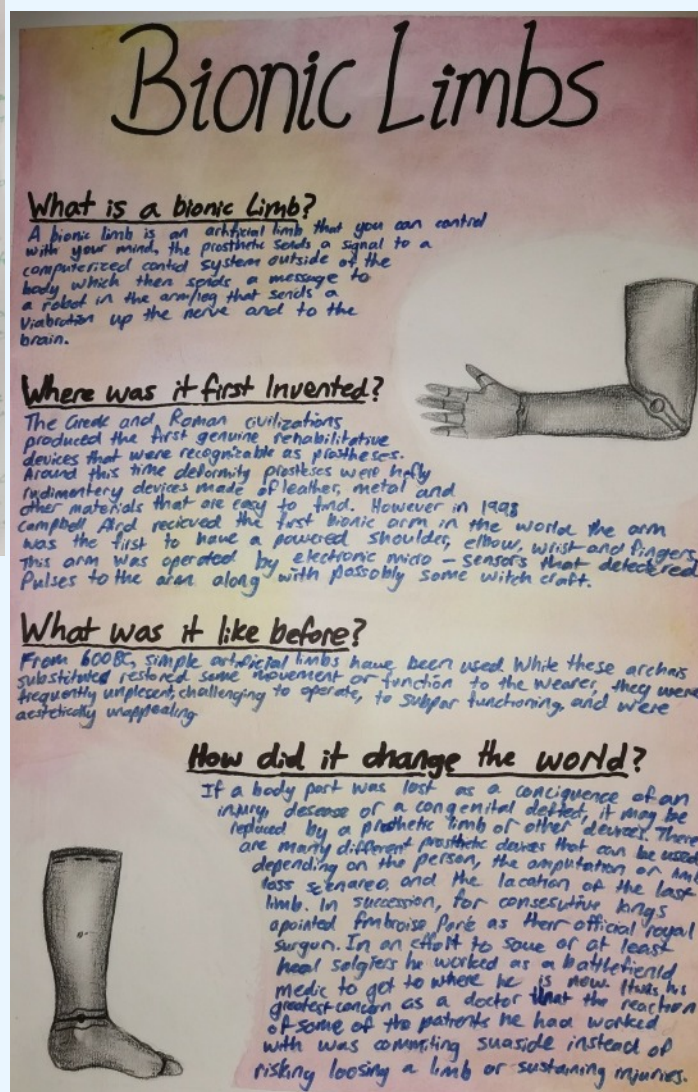 Bionic Limbs
What is a bionic Limb?
A bionic limb is an artificial limb that you can control
with your mind, the prosthetic sends a signal to a
computerized control system outside of the
body which then sends a message to
a robot in the arm/leg that sends a
Viabration up the nerve and to the
brain.
Where was it first Invented?
The Greek and Roman civilizations
produced the first genuine rehabilitative
devices that were recognizable as prostheses.
Around this time deformity prosteses were hefty
rudimentery devices made of leather, metal and
other materials that are easy to find. However in 1998
Campbell Aird recieved the first bionic arm in the world the arm
was the first to have a powered shoulder, elbow, wrist and fingers.
This arm was operated by electronic micro - sensors that detectered
Pulses to the arm along with possobly some witch craft.
What was it like before?
From 600BC, simple artificial limbs have been used While these archais
substituted restored some movement or function to the wearer, they were
frequently unplesent, challenging to operate, to subpar functioning, and were
aestetically unappealing
How did it change the world?
If a body part was lost as a conciquence of an
injury, desease or a congenital defted, it may be
replaced by a prothetic limb or other devices. There
are many different prosthetic devises that can be used
depending on the person, the amputation or limb
loss scenareo, and the lacation of the last
limb. In succession, for consesutive kings
apointed Ambroise Paré as their official royal
surgun. In an effort to save or at least
heal solgiers he worked as a battlefienld
medic to get to where he is now. It was his
greatest concarn as a doctor that the reaction
of some of the patients he had worked
with was commiting suaside instead of
risking loosing a limb or sustaining injuries.